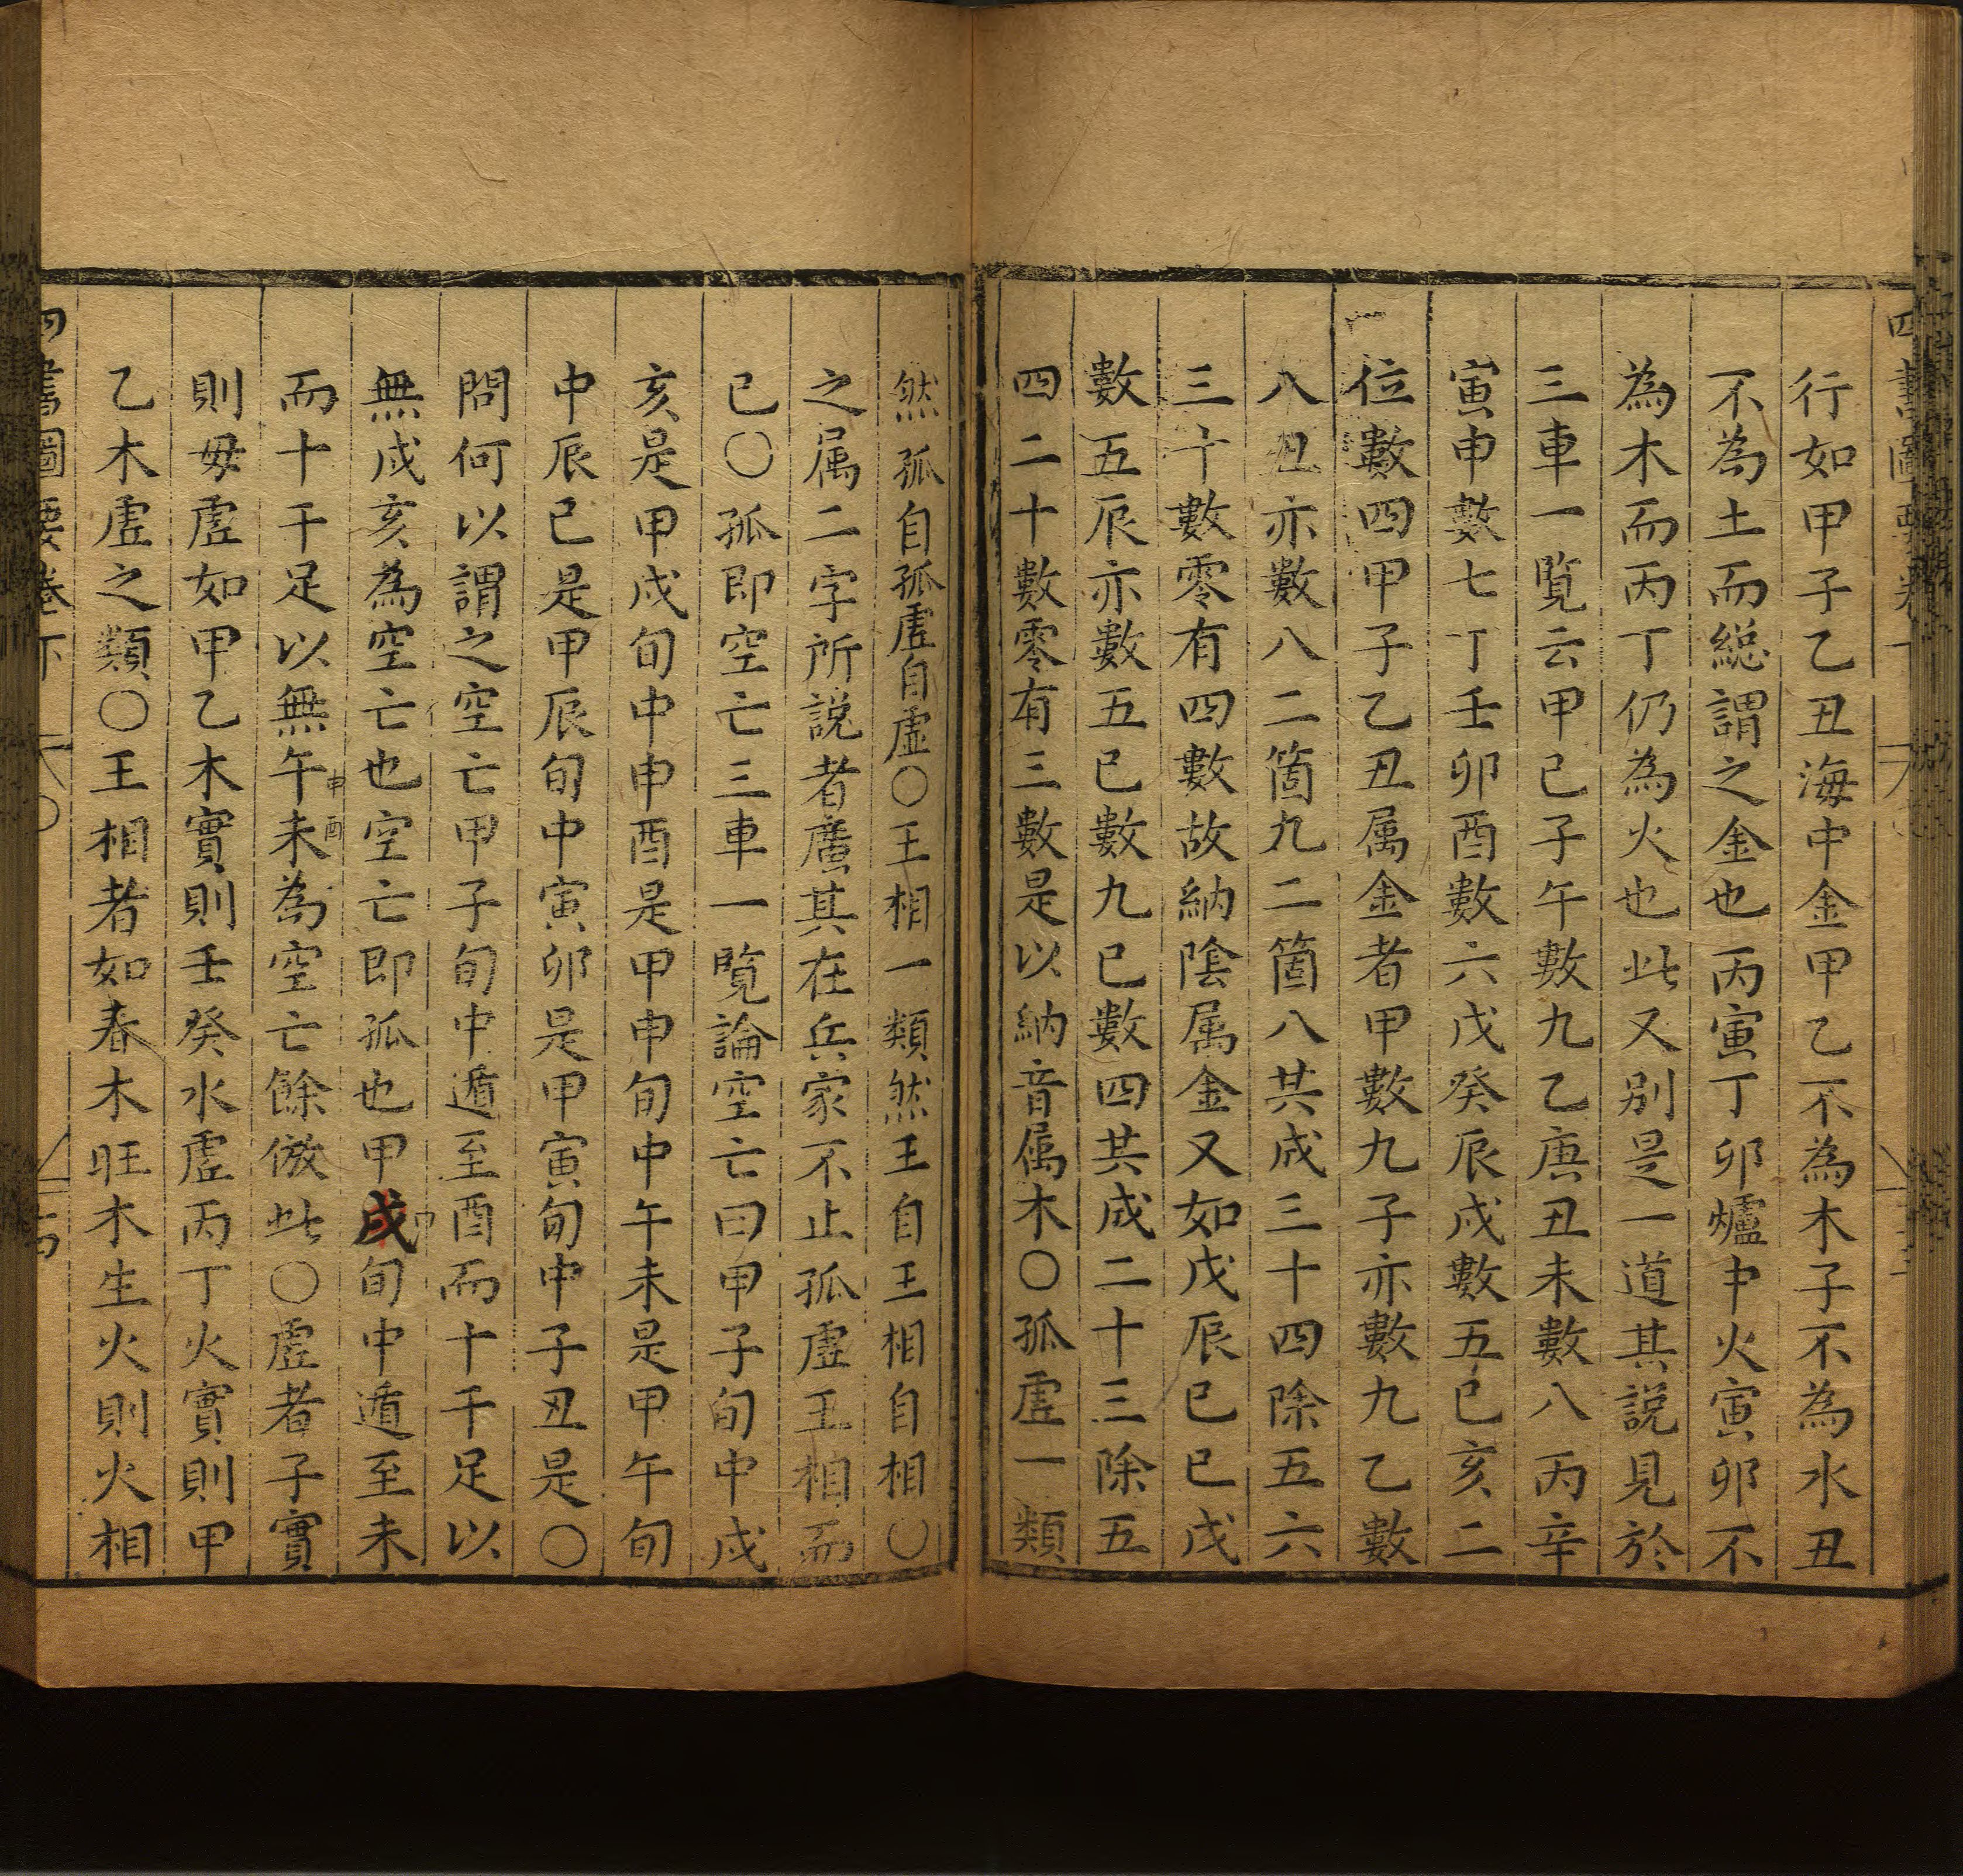 行如甲子乙丑海中金甲乙不為木子不為水丑
不為土而緫謂之金也丙寅丁卯爐中火寅卯不
為木而丙丁仍為火也此又别是一道其説見於
三車一覧云甲己子午數九乙庚丑未數八丙辛
寅申數七丁壬卯酉數六戊癸辰戌數五巳亥二
位數四甲子乙丑属金者甲數九子亦數九乙數
八丑亦數八二箇九二箇八共成三十四除五六
三十數零有四數故納陰属金又如戊辰己巳戊
數五辰亦數五己數九巳數四共成二十三除五
四二十數零有三數是以納音属木〇孤虛一類
然孤自孤虛自虛〇王相一類然王自王相自相〇
之属二字所説者廣其在兵家不止孤虛王相而
已〇孤即空亡三車一覧論空亡曰甲子旬中戌
亥是甲戌旬中申酉是甲申旬中午未是甲午旬
中辰巳是甲辰旬中寅卯是甲寅旬中子丑是〇
問何以謂之空亡甲子旬中遁至酉而十干足以
無戌亥為空亡也空亡即孤也甲戌旬中遁至未
而十干足以無午未為空亡餘倣此〇虛者子實
申酉
則毋虛如甲乙木實則壬癸水虛丙丁火實則甲
乙木虛之類〇王相者如春木旺木生火則火相
四書圖要卷下